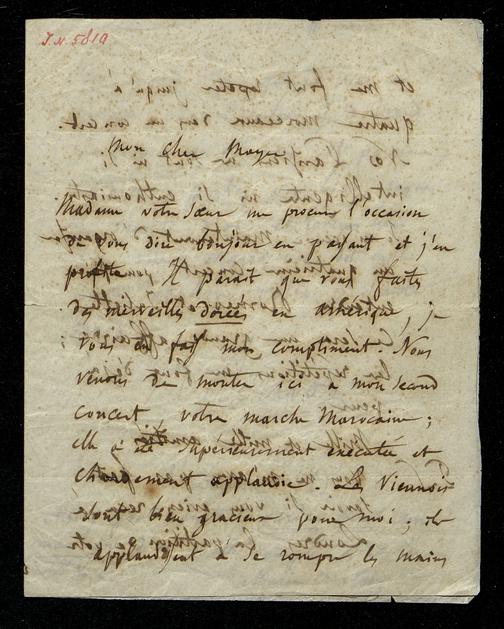 J.N. 5819
Mon cher Meyer
Madame votre Sœur me procure l'occasion
de vous dire bonjour en passant et j'en
profite. Il parait que vous faites
des merveilles dorées en amérique, je
vous en fais mon compliment. Nous
venons de monter ici à mon second
concert, votre marche Marocaine;
elle a été superieurement exécutée et
chaudement applaudie. Les Viennois
sont bien gracieux pour moi; ils
applaudissent à se rompre les mains